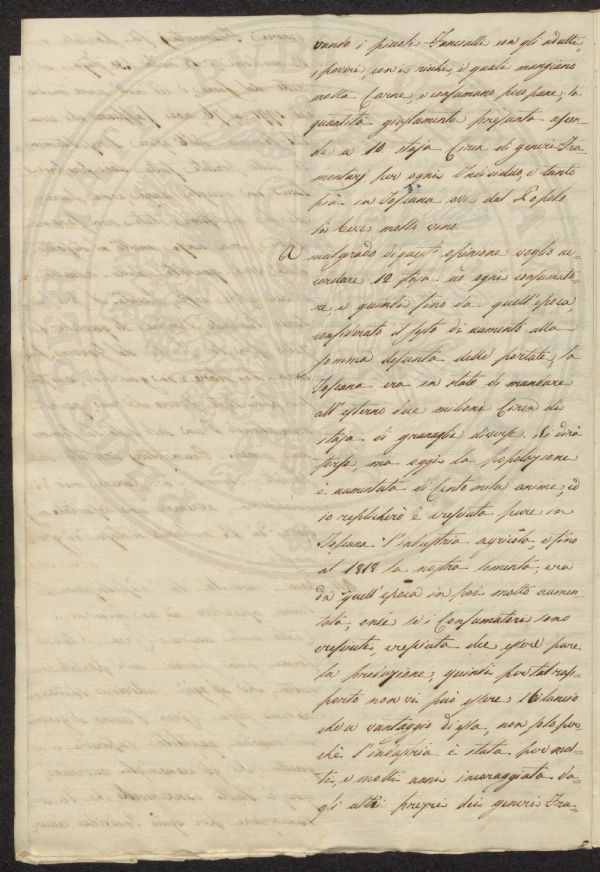 vando i piccoli Fanciulli con gli adulti,
i poveri, con i ricchi, i quali mangiano
molta Carne, e consumano poco pane, la
quantità giustamente presunta ascen-
de a 10 staja Circa di generi Fru-
mentarj per ogni Individuo, e tanto
più in Toscana ove dal Popolo
si beve molto vino.
A malgrado di quest' opinione voglio ac-
cordare 12 staja ad ogni consumato-
re, e quindi fino da quell'epoca,
considerato il sesto di aumento alla
somma desunta dalle portate, la
Toscana era in stato di mandare
all'esterno due milioni Circa di
staja di granaglie diverse. Si dirà
forse, ma oggi la popolazione
è aumentata di Cento mila anime, ed
io replicherò è cresciuta pure in
Toscana l'industria agricola, e fino
al 1818 la nostra sementa, era
da quell'epoca in poi molto aumen-
tata, onde se i Consumatori sono
cresciuti, cresciuta dee essere pure
la produzione, quindi per tal rap-
porto non vi può essere sbilancio
che a vantaggio di essa, non solo per-
chè l'industria è stata per mol-
ti, e molti anni incoraggiata da-
gli alti prezzi dei generi Fru-